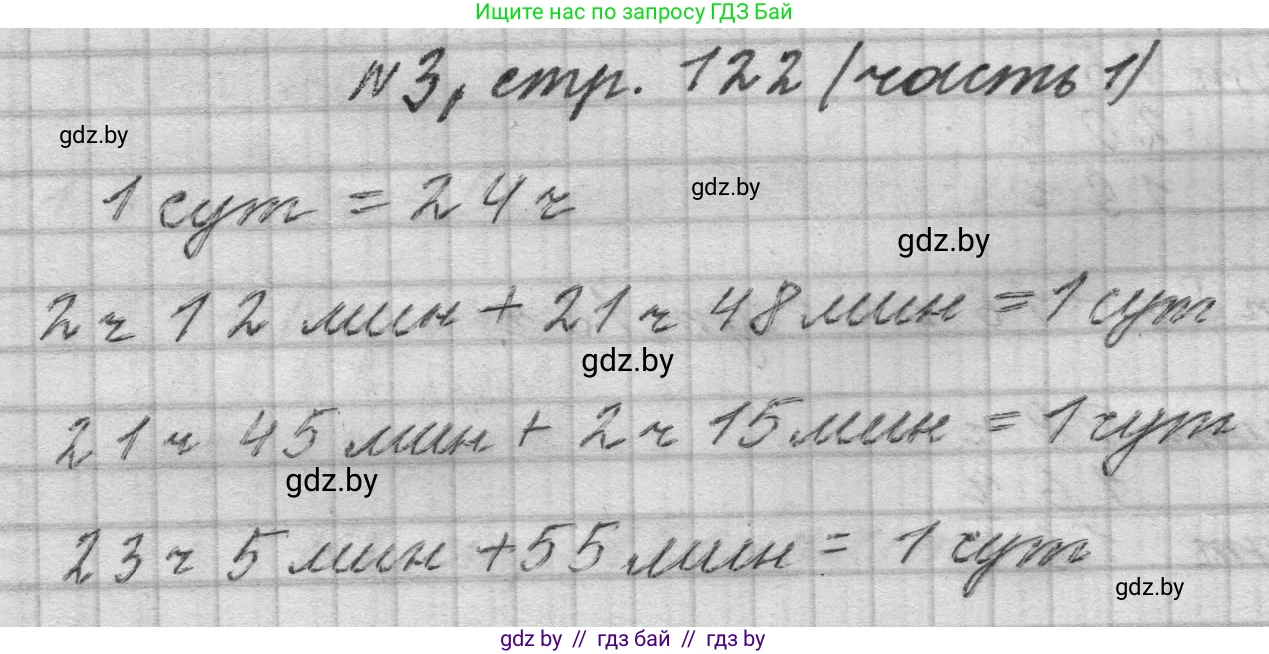 Ищите нас по запросу ГДЗ Бай
№3, стр. 122 (часть 1)
gdz.by
1 сут = 24 ч
gdz.by
gdz.by
2 ч 12 мин + 21 ч 48 мин = 1 сут
gdz.by
21 ч 45 мин + 2 ч 15 мин = 1 сут
gdz.by
23 ч 5 мин + 55 мин = 1 сут
gdz.by
gdz by // гдз бай // гдз by